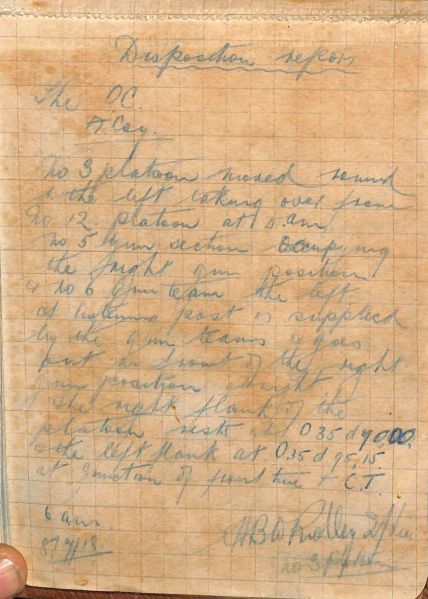 Disposition report
The O.C.
A Coy.
No 3 platoon moved round
to the left taking over from
No 12 platoon at 5 am
No 5 gun section occupying
the fright gun position
& No 6 gun team the left.
a listening post is supplied
by the gun teams & goes
out in front of the right
gun position at night
The right flank of the
platoon rests at O35 d 90.00.
& the left flank at O35 d 95.15.
at junction of front line & C.T.
6 am
H B W Ridley
No 3 platoon